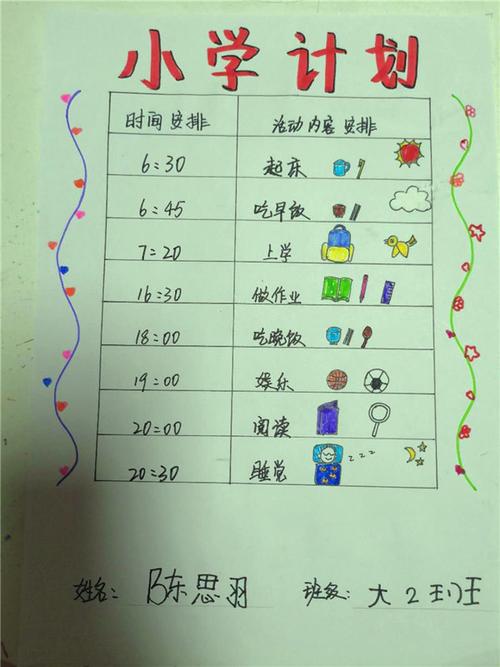 小学计划
时间安排 活动内容安排
6:30 起床
6:45 吃早饭
7:20 上学
16:30 做作业
18:00 吃晚饭
19:00 娱乐
20:00 阅读
20:30 睡觉 z z z
姓名: 陈思羽 班级: 大2班